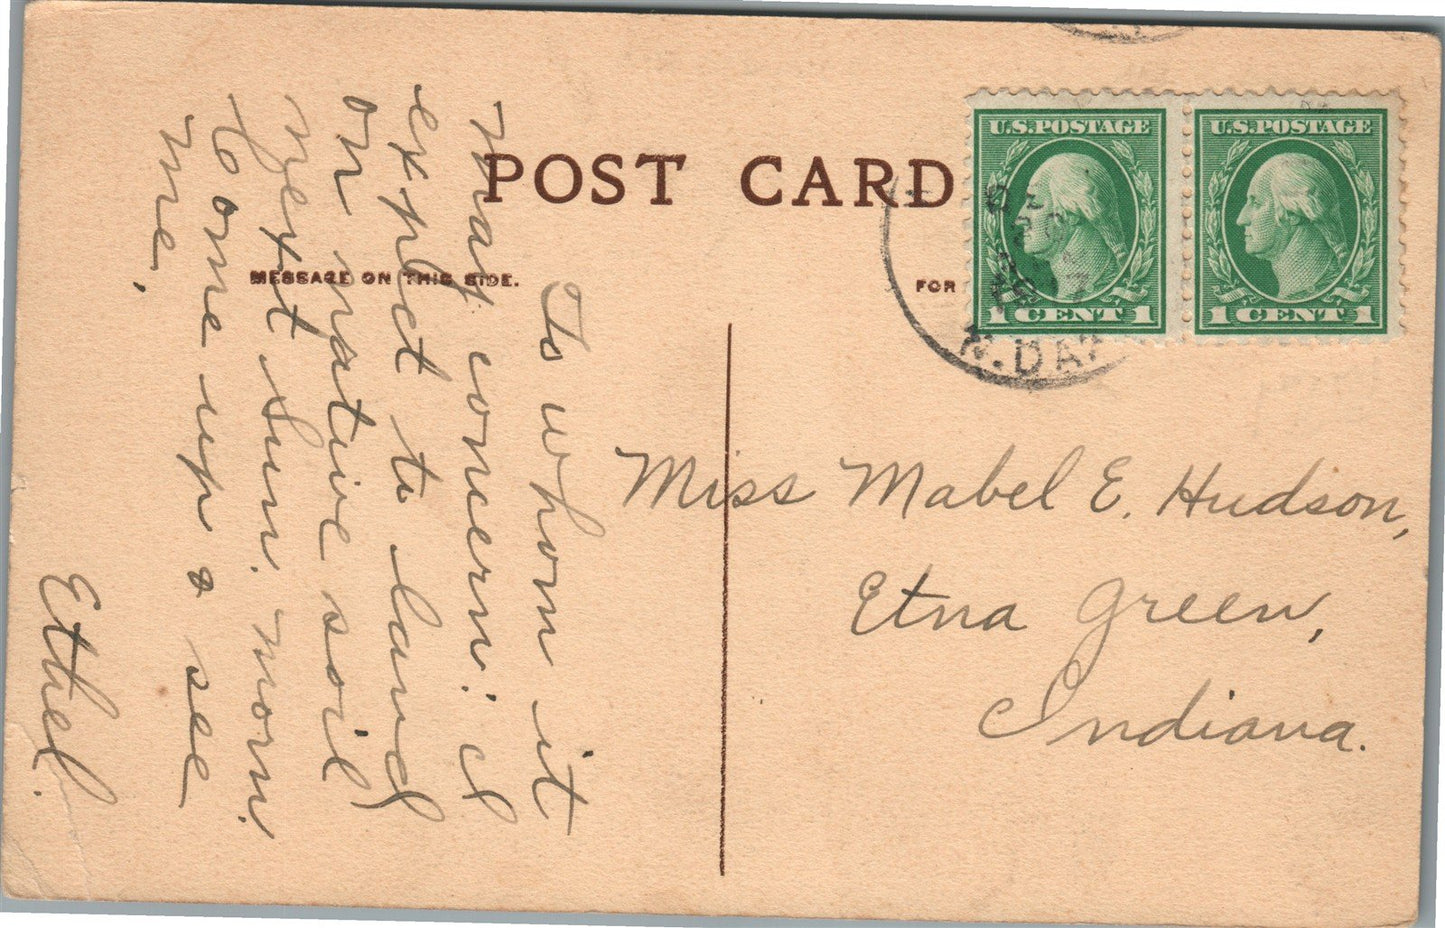 POST CARD
MESSAGE ON THIS SIDE.
FOR
U.S. POSTAGE
1 CENT 1
U.S. POSTAGE
1 CENT 1
N. DAK
To whom it
may concern: I
expect to land
on native soil
next Sun. morn.
Come up & see
me,
Ethel.
Miss Mabel E. Hudson,
Etna Green,
Indiana.